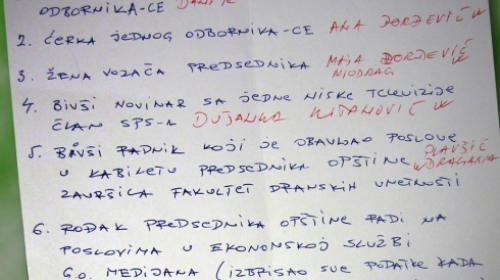 ODBORNIKA-CE
2. ĆERKA JEDNOG ODBORNIKA-CE ANA ĐORĐEVIĆ
3. ŽENA VOZAČA PREDSEDNIKA MAJA ĐORĐEVIĆ
MIODRAG
4. BIVŠI NOVINAR SA JEDNE NIŠKE TELEVIZIJE
ČLAN SPS-A DUŠANKA
5. BIVŠI RADNIK KOJI JE OBAVLJAO POSLOVE
U KABINETU PREDSEDNIKA OPŠTINE DRAGANA
ZAVRŠILA FAKULTET DRAMSKIH UMETNOSTI
6. ROĐAK PREDSEDNIKA OPŠTINE RADI NA
POSLOVIMA U EKONOMSKOJ SLUŽBI
G.O. MEDIJANA (IZBRISAO SVE PODATKE KADA